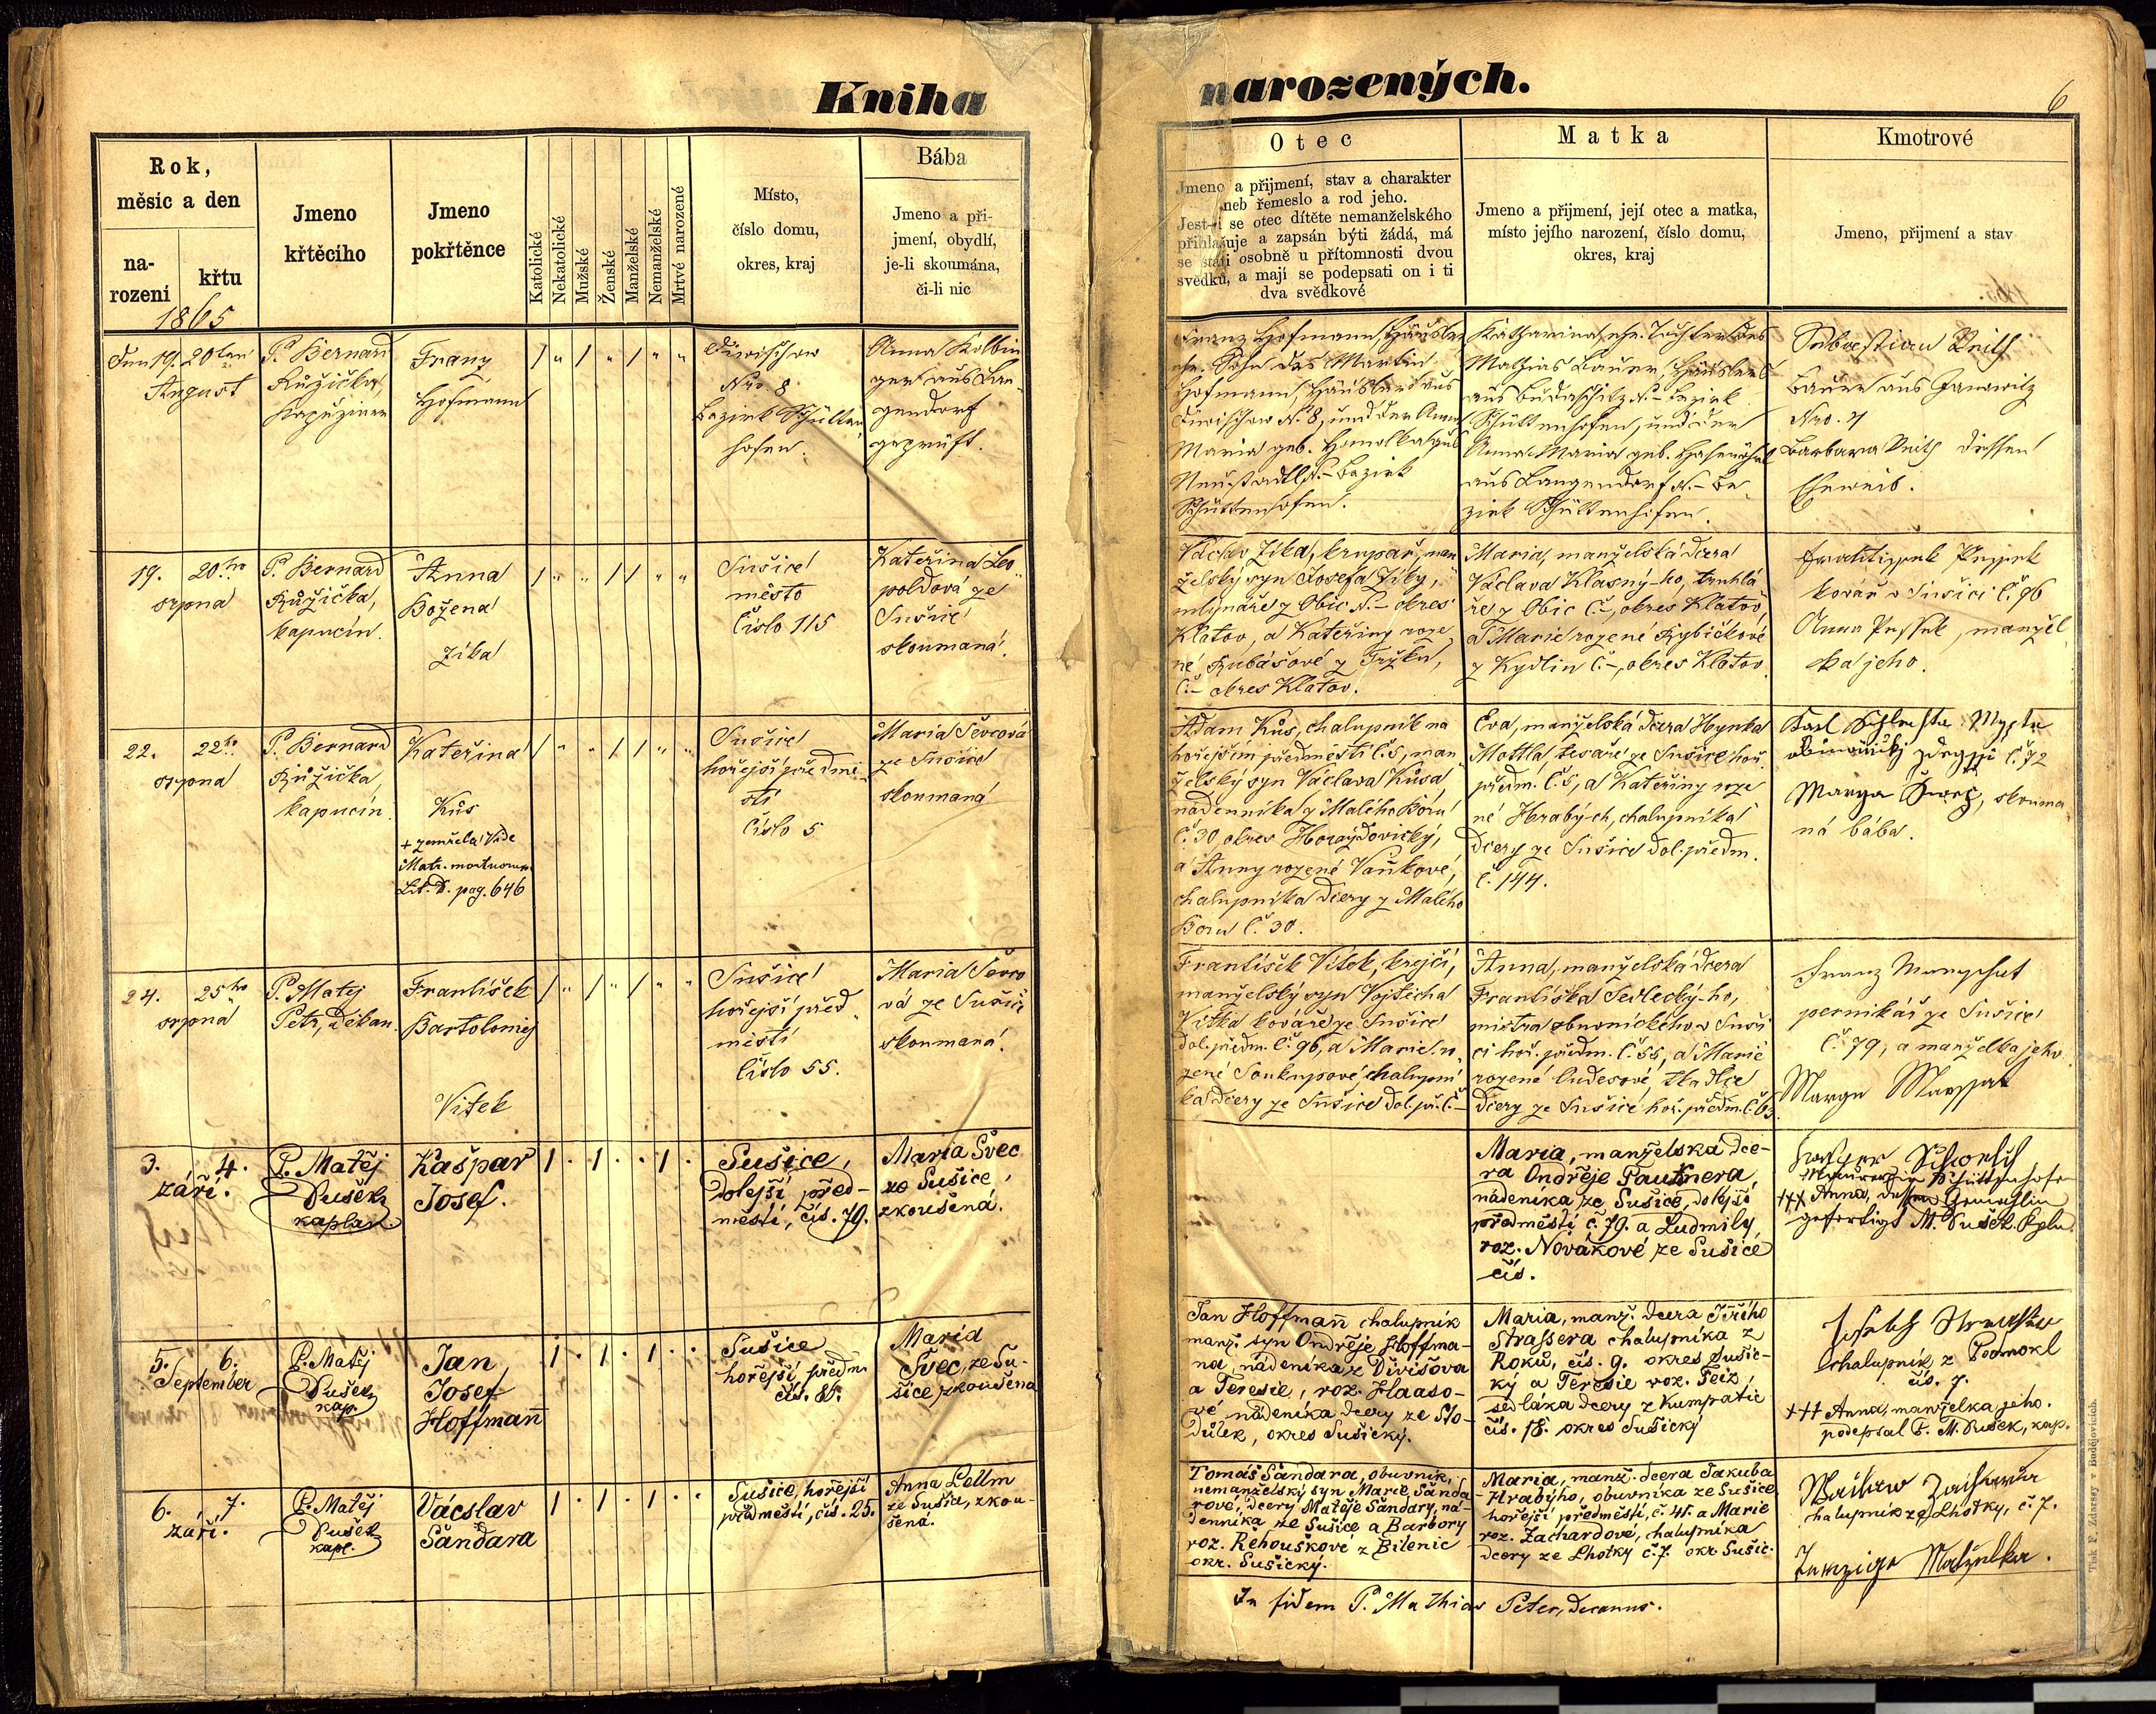 Kniha
narozených.
6
Rok,
měsíc a den
na-
rození
křtu
1865
Jmeno
křtěcího
Jmeno
pokřtěnce
Katolické
Nekatolické
Mužské
Ženské
Manželské
Nemanželské
Mrtvé narozené
Místo,
číslo domu,
okres, kraj
Bába
Jmeno a pří-
jmení, obydlí,
je-li skoumána,
či-li nic
Otec
Jmeno a přijmení, stav a charakter
aneb řemeslo a rod jeho.
Jest-li se otec dítěte nemanželského
přihlašuje a zapsán býti žádá, má
se státi osobně u přítomnosti dvou
svědků, a mají se podepsati on i ti
dva svědkové
Matka
Jmeno a přijmení, její otec a matka,
místo jejího narození, číslo domu,
okres, kraj
Kmotrové
Jmeno, přijmení a stav
Den 19. 20ten
August
P. Bernard
Růžička,
Kapuziner
Franz
Hofmann
Diwischow
Nro 8
Bezirk Schütten-
hofen.
Anna Kolbin
ger aus Lan-
gendorf
geprüft.
Franz Hofmann, Häusler
ehe. Sohn des Martin
Hofmann, Häuslers aus
Diwischow N. 8, und der Anna
Maria geb. Homolka aus
Neustadtl N.– Bezirk
Schüttenhofen.
Katharina, ehe. Tochter des
Mathias Bauer, Häuslers
aus Budaschitz N.– Bezirk
Schüttenhofen, und der
Anna Maria geb.
aus Langendorf N.– Be-
zirk Schüttenhofen.
Sebastian Veith
Bauer aus Janowitz
Nro. 4
Barbara Veith dessen
Eheweib.
19. 20ho
srpna
P. Bernard
Růžička,
kapucín.
Anna
Božena
Zíka
Sušice
město
Číslo 115
Kateřina Leo-
poldová ze
Sušice
skoumaná.
Václav Zíka, krupař, man-
želský syn Josefa Zíky,
mlynáře z Obic N.– okres
Klatov, a Kateřiny roze-
né Rubášové z Fryku,
č.– okres Klatov.
Maria, manželská dcera
Václava Klasný-ho, truhlá-
ře z Obic č–, okres Klatov,
a Marie rozené Rybičkové
z Kydlin č.–, okres Klatov.
kovář v Sušici č. 96
Anna, manžel
ka jeho.
22. 22ho
srpna
P. Bernard
Růžička,
kapucín.
Kateřina
Kůs
+ zemřela Vide
Matr. mortuorum
Lit. D. pag. 646
Sušice
hořejší předmě-
stí
Číslo 5
Maria Ševcová
ze Sušice
skoumaná
Adam Kůs, chalupník na
hořejším předměstí č. 5, man-
želský syn Václava Kůsa,
nádenníka z Malého Boru
č. 30, okres Horažďovický,
a Anny rozené Vaňkové,
chalupníka dcery z Malého
Boru č. 30.
Eva, manželská dcera Hynka
Mottla, tesaře ze Sušice hoř.
předm. č. 5, a Kateřiny roze
né Hrabých, chalupníka
dcery ze Sušice dol. předm.
č. 144.
č 72
Marya, skouma
ná bába.
24. 25ho
srpna
P. Matěj
Petr, děkan.
František
Bartoloměj
Vítek
Sušice
hořejší před-
městí
číslo 55.
Maria Ševco
vá ze Sušice
skoumaná.
František Vítek, krejčí,
manželský syn Vojtěcha
Vítka kováře ze Sušice
dol. předm. č. 96, a Marie ro-
zené Soukupové, chalupní-
ka dcery ze Sušice dol. př. č.–
Anna, manželská dcera
Františka Sedlecký-ho,
mistra obuvnického v Suši-
ci hoř. předm. č. 55, a Marie
rozené Oudesové, tkadlce
dcery ze Sušice hoř. předm. č. 63.
Franz
pernikář ze Sušice
č. 79, a manželka jeho
3. 4.
září.
P. Matěj
Dušek
kaplan.
Kašpar
Josef.
Sušice,
Dolejší před-
městí, čís. 79.
Maria Švec
ze Sušice,
zkoušená.
Maria, manželská dce-
ra Ondřeje Pautnera,
nádeníka ze Sušice, dolejší
předměstí č. 79. a Ludmily,
roz. Novákové ze Sušice
čís.
Maurer in Schüttenhofen
+++ Anna, dessen Gemahlin
gefertigt M. Dušek. Kpln.
5. 6.
September
P. Matěj
Dušek
kap.
Jan
Josef
Hoffmann
Sušice
hořejší předm.
čís. 81.
Maria
Švec, ze Su-
šice zkoušená
Jan Hoffmann chalupník
manž. syn Ondřeje Hoffma-
na, nádeníka z Divišova
a Teresie, roz. Haaso-
vé nádeníka dcery ze Sto-
důlek, okres Sušický.
Maria, manž. dcera Jiřího
Strassera chalupníka z
Roků, čís. 9. okres Sušic-
ký a Teresie roz. Seiz,
sedláka dcery z Kumpatic
čís. 18. okres Sušický
chalupník z Podmokl
čís. 7.
+++ Anna, manželka jeho.
podepsal P. M. Dušek, kap.
6. 7.
září.
P. Matěj
Dušek
kapl.
Vácslav
Šandara
Sušice, hořejší
předměstí, čís. 25.
Anna Lellm
ze Sušice, zkou-
šená.
Tomáš Šandara, obuvník,
nemanželský syn Marie Šanda-
rové, dcery Matěje Šandary, ná-
denníka ze Sušice a Barbory
roz. Řehouškové z Bílenic
okr. Sušický.
Maria, manž. dcera Jakuba
Hrabýho, obuvníka ze Sušice
hořejší předměstí, č. 41. a Marie
roz. Zachardové, chalupníka
dcery ze Lhotky č. 7. okr. Sušic.
chalupník ze Lhotky, č. 7.
In fidem P. Mathias Peter, decanus.
Tisk F. Zdarssy v Budějovicích.